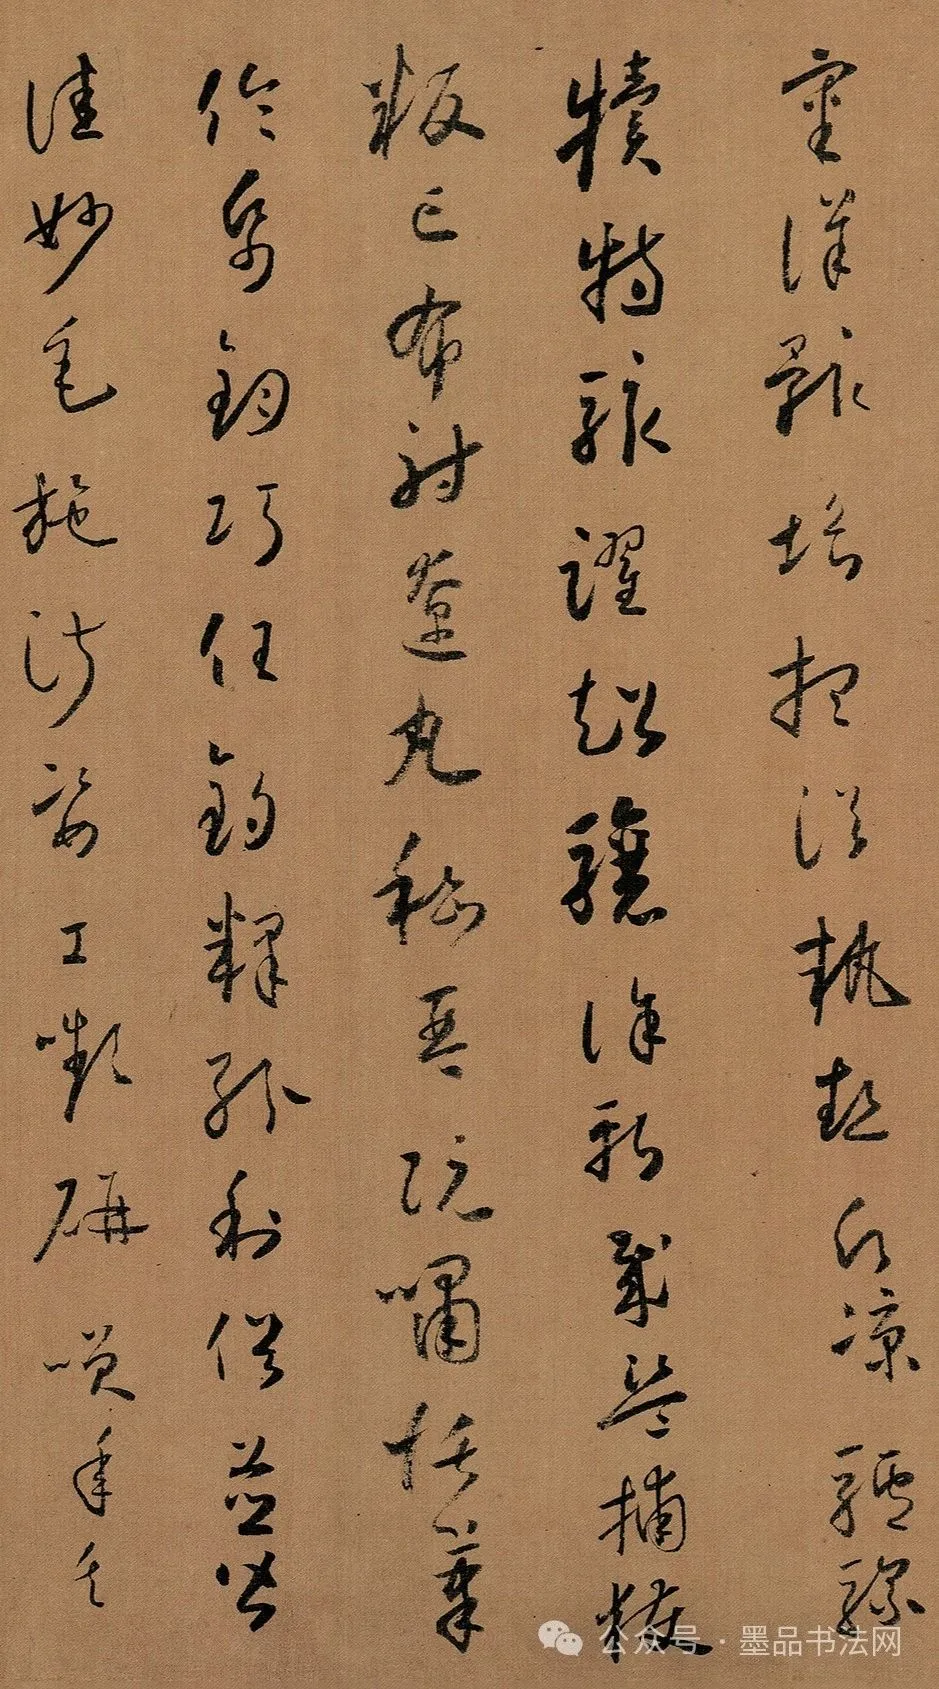 審詳骸垢想浴執熱願涼驢騾
犢特駭躍超驤誅斬賊盜捕獲
叛亡布射遼丸嵇琴阮嘯恬筆
倫紙鈞巧任釣釋紛利俗並皆
佳妙毛施淑姿工顰妍笑年矢
公众号 · 墨品书法网